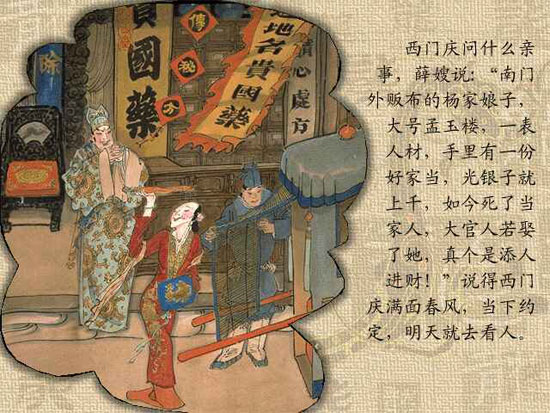 西门庆问什么亲
事，薛嫂说：“南门
外贩布的杨家娘子，
大号孟玉楼，一表
人材，手里有一份
好家当，光银子就
上千，如今死了当
家人，大官人若娶
了她，真个是添人
进财！”说得西门
庆满面春风，当下约
定，明天就去看人。
國藥
傳
秘
地名貴國藥
心處方